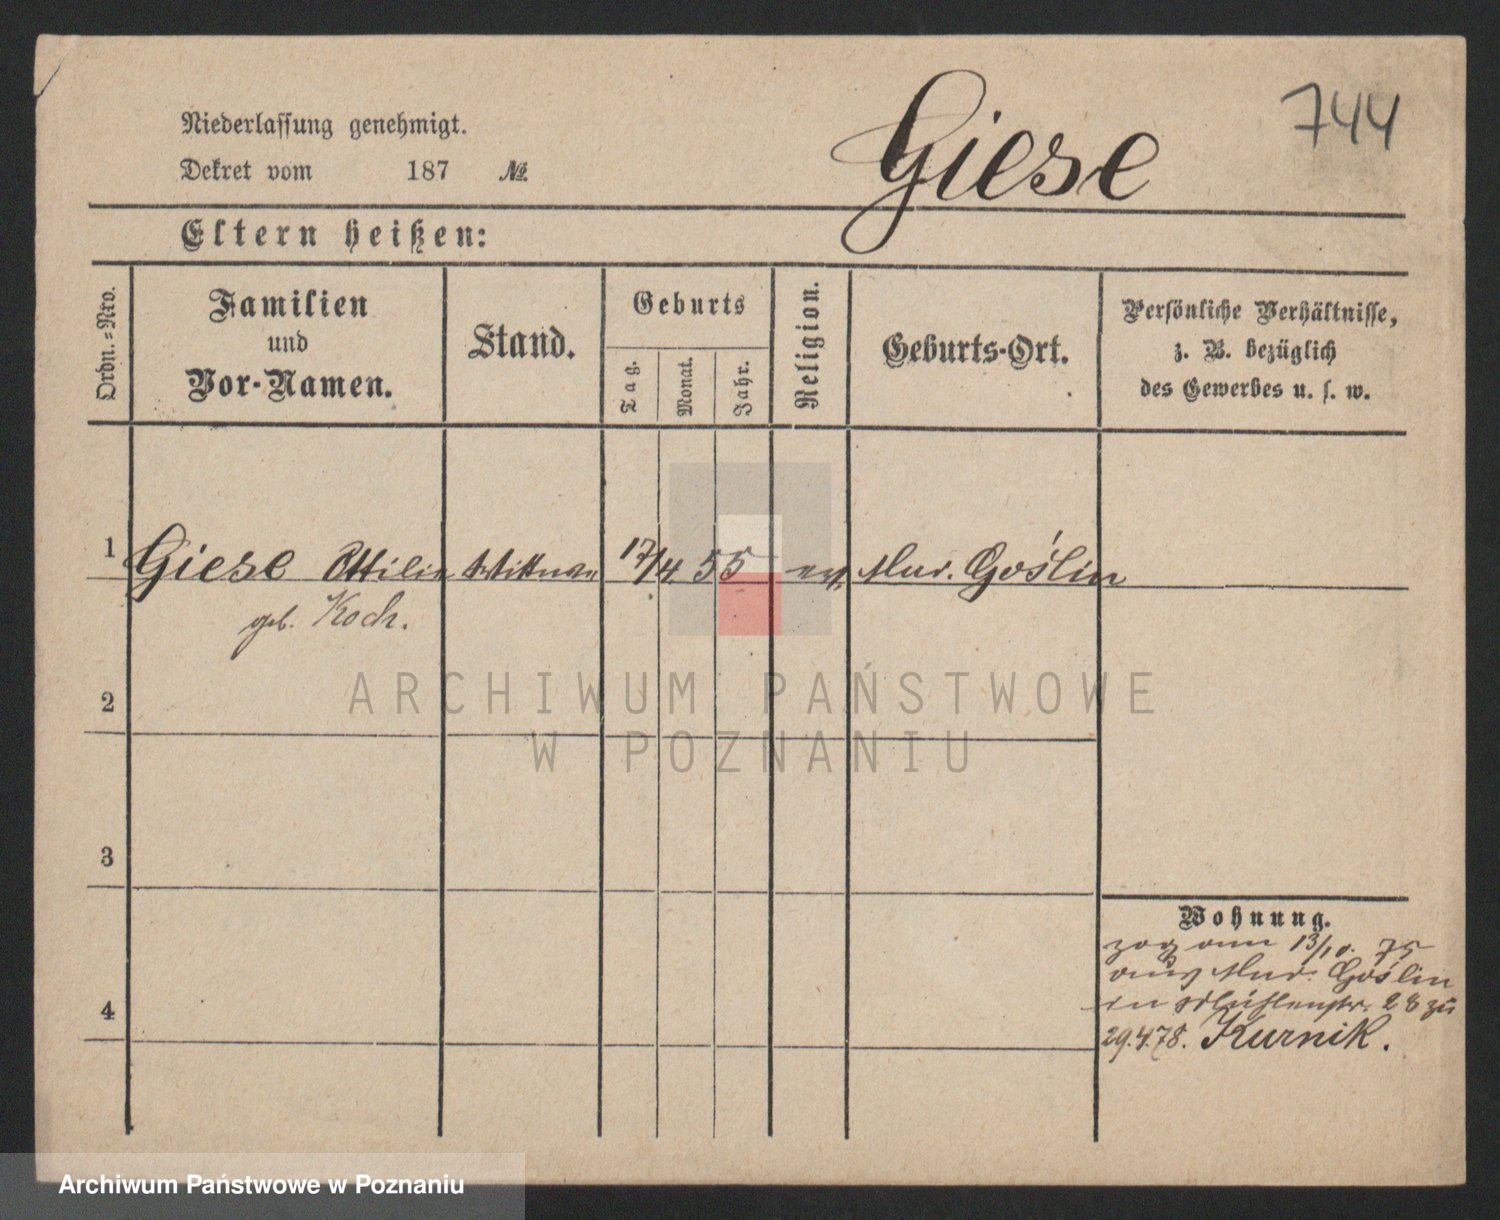 744
Niederlassung genehmigt.
Giese
Dekret vom 187 No.
Eltern heißen:
Ordn.-Nro.
Familien und Vor-Namen.
Stand.
Geburts
Tag.
Monat.
Jahr.
Religion.
Geburts-Ort.
Persönliche Verhältnisse,
z. B. bezüglich
des Gewerbes u. s. w.
1 Giese Ottilie Wittwe 17/4 55 ev. Mur. Goślin
geb. Koch.
2
3
4
Wohnung.
zog am 13/10. 75
aus Mur. Goślin
in Mühlenstr. 28 zu
29.4.78. Kurnik.
ARCHIWUM PAŃSTWOWE
W POZNANIU
Archiwum Państwowe w Poznaniu